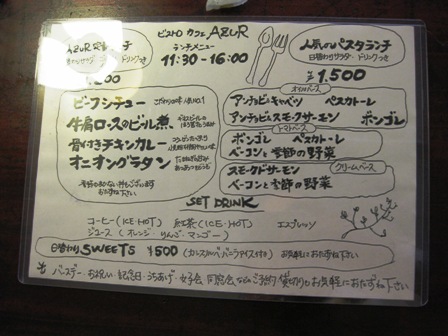 ビストロ カフェ AZUR
ランチメニュー
11:30-16:00
AZUR ランチ
人気のパスタランチ
日替わりサラダ・ドリンクつき
¥1.500
ビーフシチュー
牛肩ロースのビール煮
骨付きチキンカレー
オニオングラタン
オイルベース
アンチョビキャベツ ペスカトーレ
アンチョビとスモークサーモン ボンゴレ
トマトベース
ボンゴレ ペスカトーレ
ベーコンと季節の野菜
クリームベース
スモークドサーモン
ベーコンと季節の野菜
SET DRINK
コーヒー(ICE・HOT) 紅茶(ICE・HOT) エスプレッソ
ジュース(オレンジ・りんご・マンゴー)
日替わり SWEETS ¥500 (バニラアイス付き) お気軽におたずね下さい
バースデー・お祝い・記念日・うちあげ・女子会・同窓会などご予約・貸切りもお気軽におたずね下さい